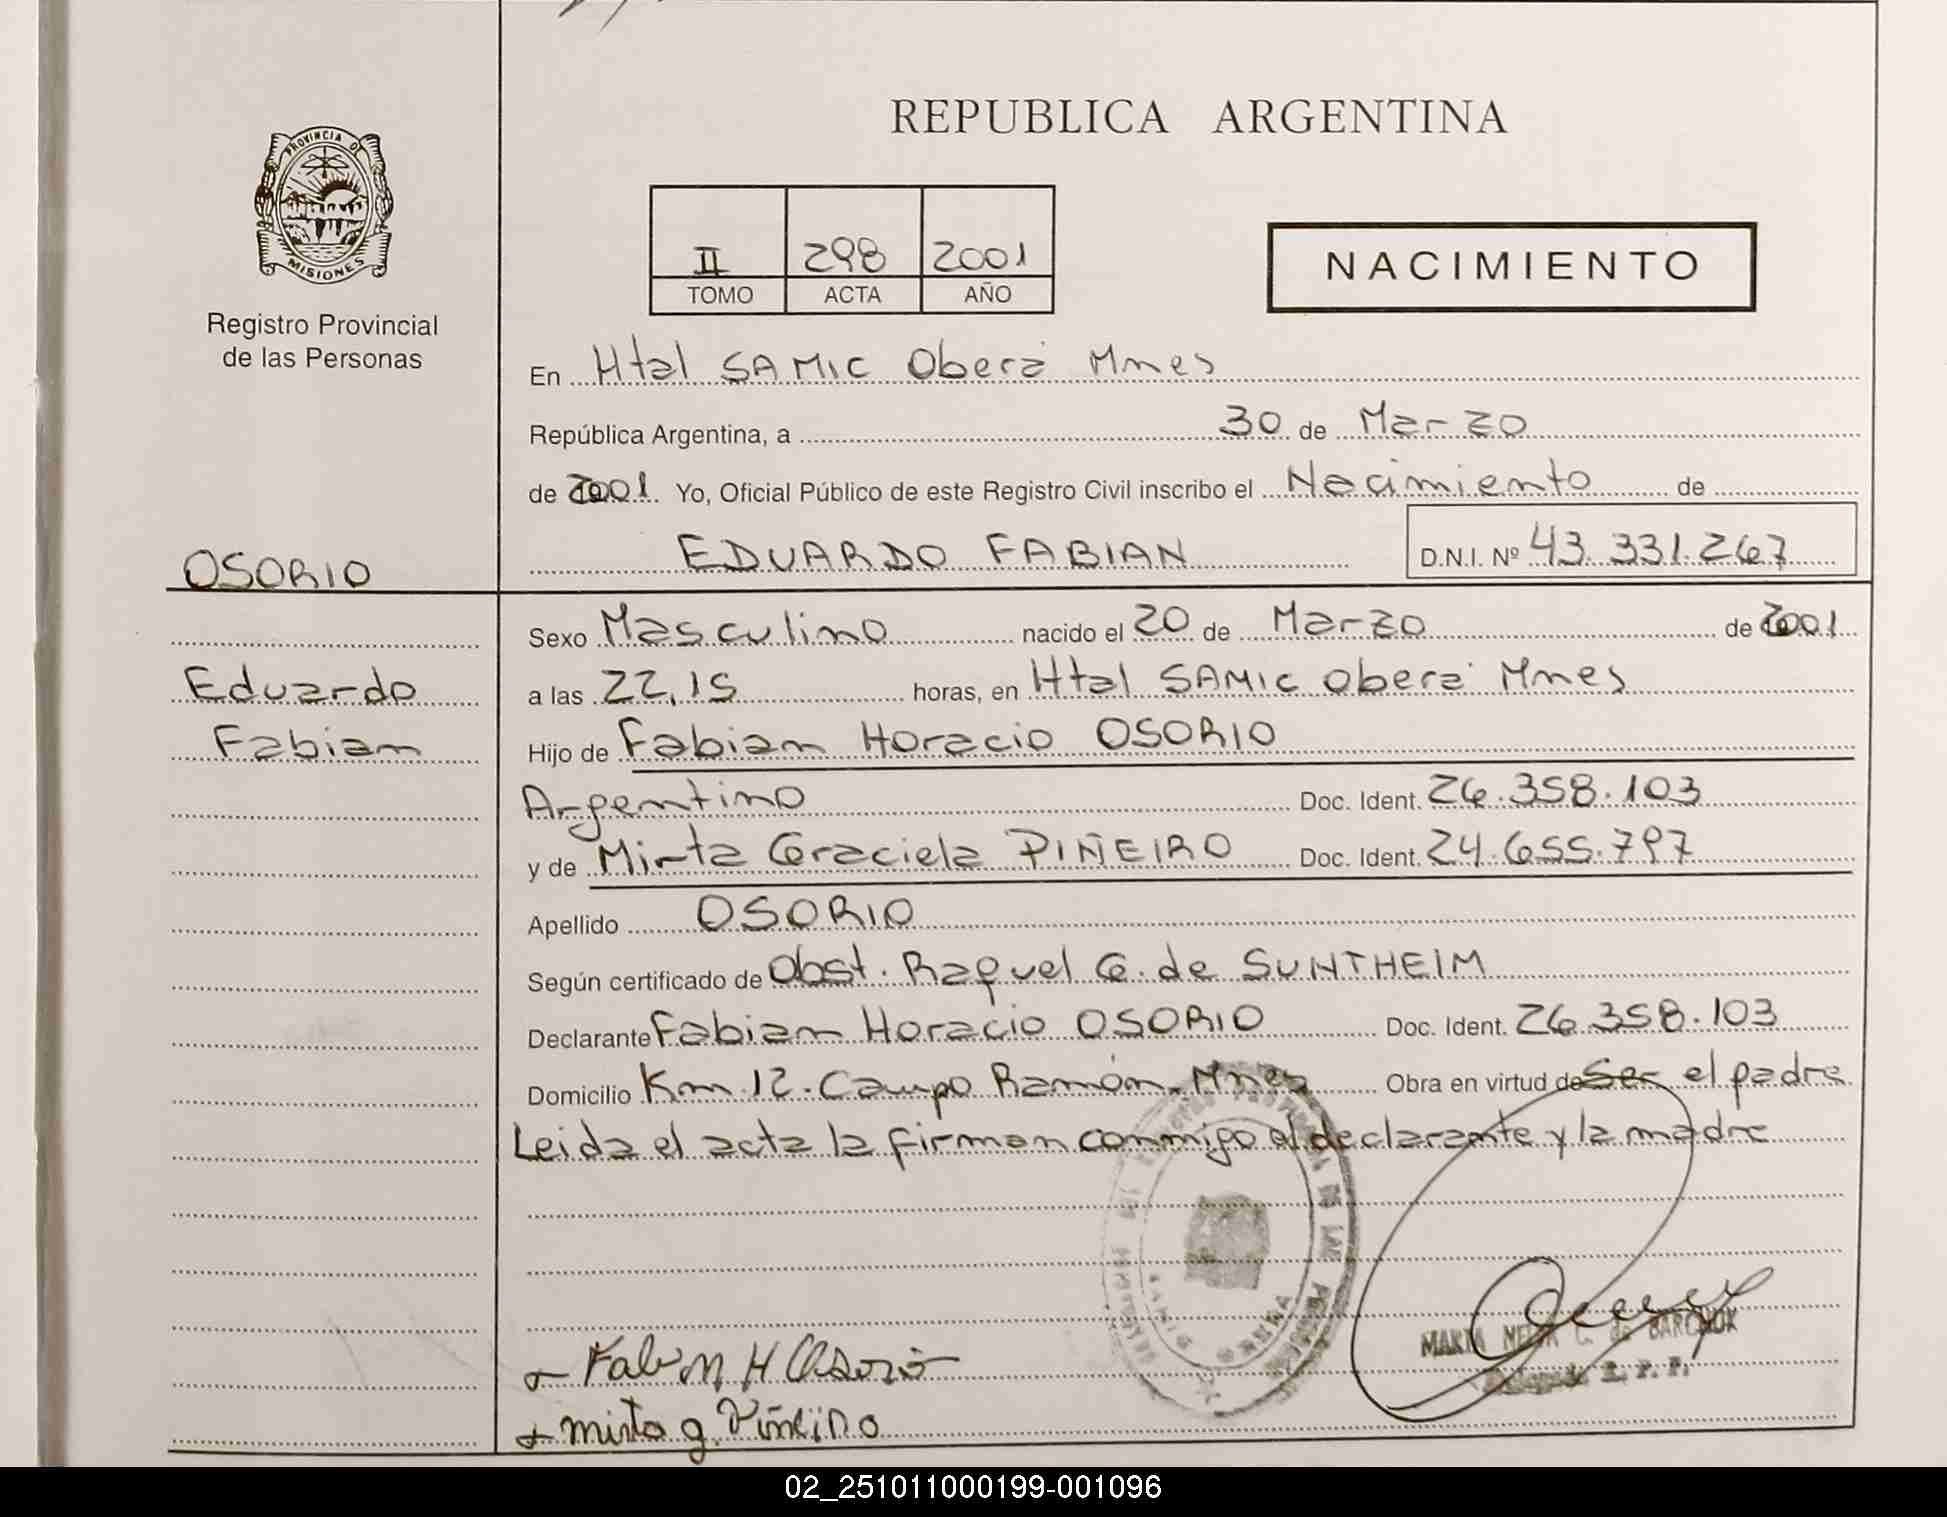 REPUBLICA ARGENTINA
PROVINCIA DE
MISIONES
Registro Provincial
de las Personas
II 298 2001
TOMO ACTA AÑO
NACIMIENTO
En Htal SAMIC Oberá Mnes
República Argentina, a 30 de Marzo
de 2001. Yo, Oficial Público de este Registro Civil inscribo el Nacimiento de
EDUARDO FABIAN D.N.I. Nº 43.331.267
OSORIO
Eduardo
Fabian
Sexo Masculino nacido el 20 de Marzo de 2001
a las 22,15 horas, en Htal SAMIC Oberá Mnes
Hijo de Fabian Horacio OSORIO
Argentino Doc. Ident. 26.358.103
y de Mirta Graciela PIÑEIRO Doc. Ident. 24.655.797
Apellido OSORIO
Según certificado de Obst. Raquel G. de SUNTHEIM
Declarante Fabian Horacio OSORIO Doc. Ident. 26.358.103
Domicilio Km. 12. Campo Ramón. Mnes Obra en virtud de Ser el padre
Leida el acta la firman conmigo el declarante y la madre
DE LAS
Fabian H Osorio
mirta g. Piñeiro
02_251011000199-001096